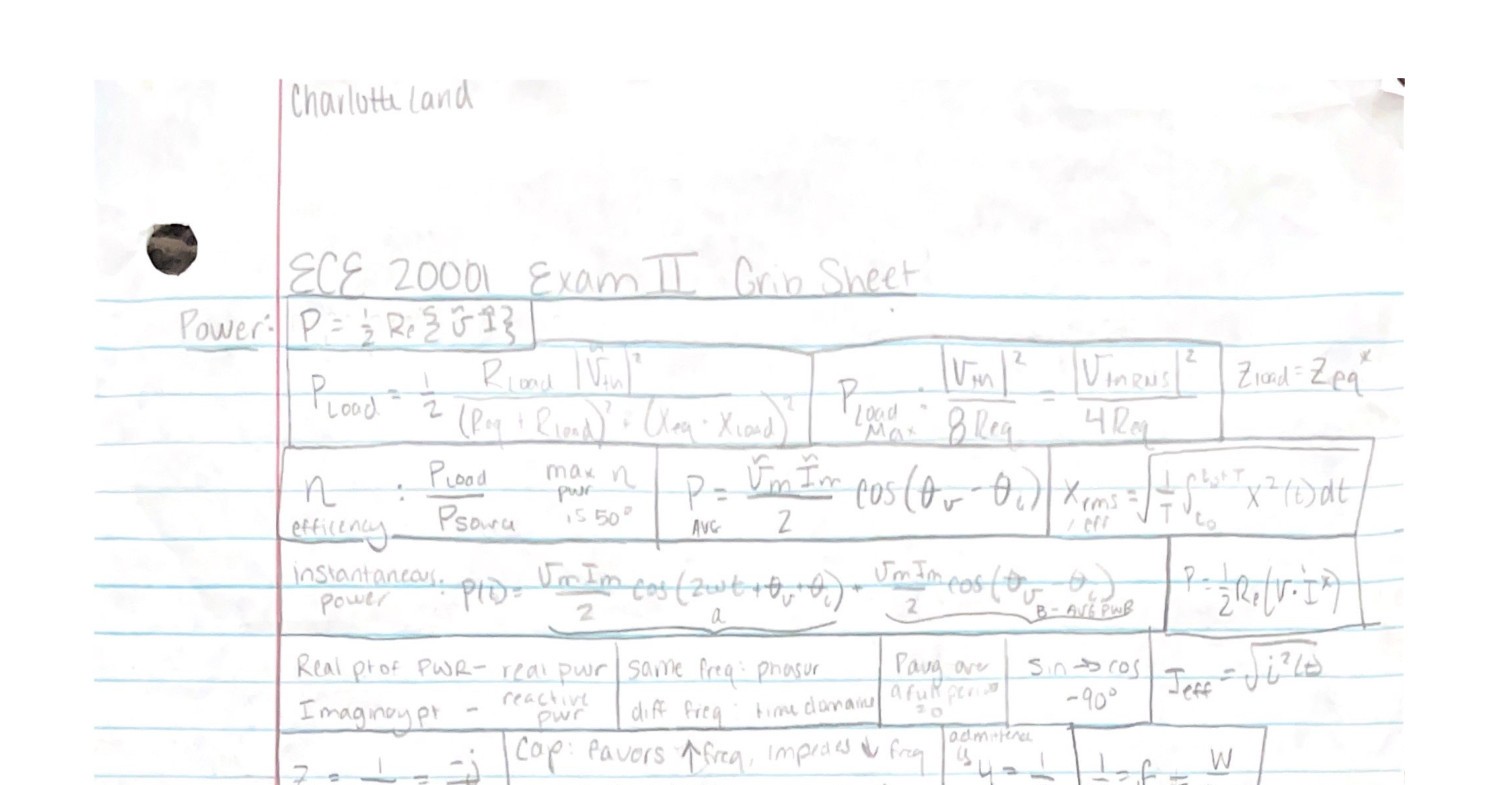 Charlotte Land
ECE 20001 Exam II Crib Sheet
Power: P = ½ Re { Ṽ Ĩ }
P Load = ½ R Load |Ṽth|² / (Req + R Load)² + (Xeq + X Load)²
P Load Max = |Vth|² / 8 Req = |Vth RMS|² / 4 Req
Z load = Zeq*
η efficency : P Load / P Source max η pwr is 50%
P AVG = Ṽm Ĩm / 2 cos (θv - θi)
X rms / eff = √( 1/T ∫ t₀ t₀+T x²(t) dt )
instantaneous power : P(t) = Vm Im / 2 cos (2ωt + θv + θi) + Vm Im / 2 cos (θv - θi)
a
B - AVG PWR
P = ½ Re (V · I*)
Real pt of PWR - real pwr
Imaginary pt - reactive pwr
same freq : phasor
diff freq : time domain
Pavg over a full period = 0
sin → cos -90°
I eff = √ i²(t)
Z = 1 = -j
Cap: Favors ↑ freq, impedes ↓ freq
is Y = 1
1 = f = W